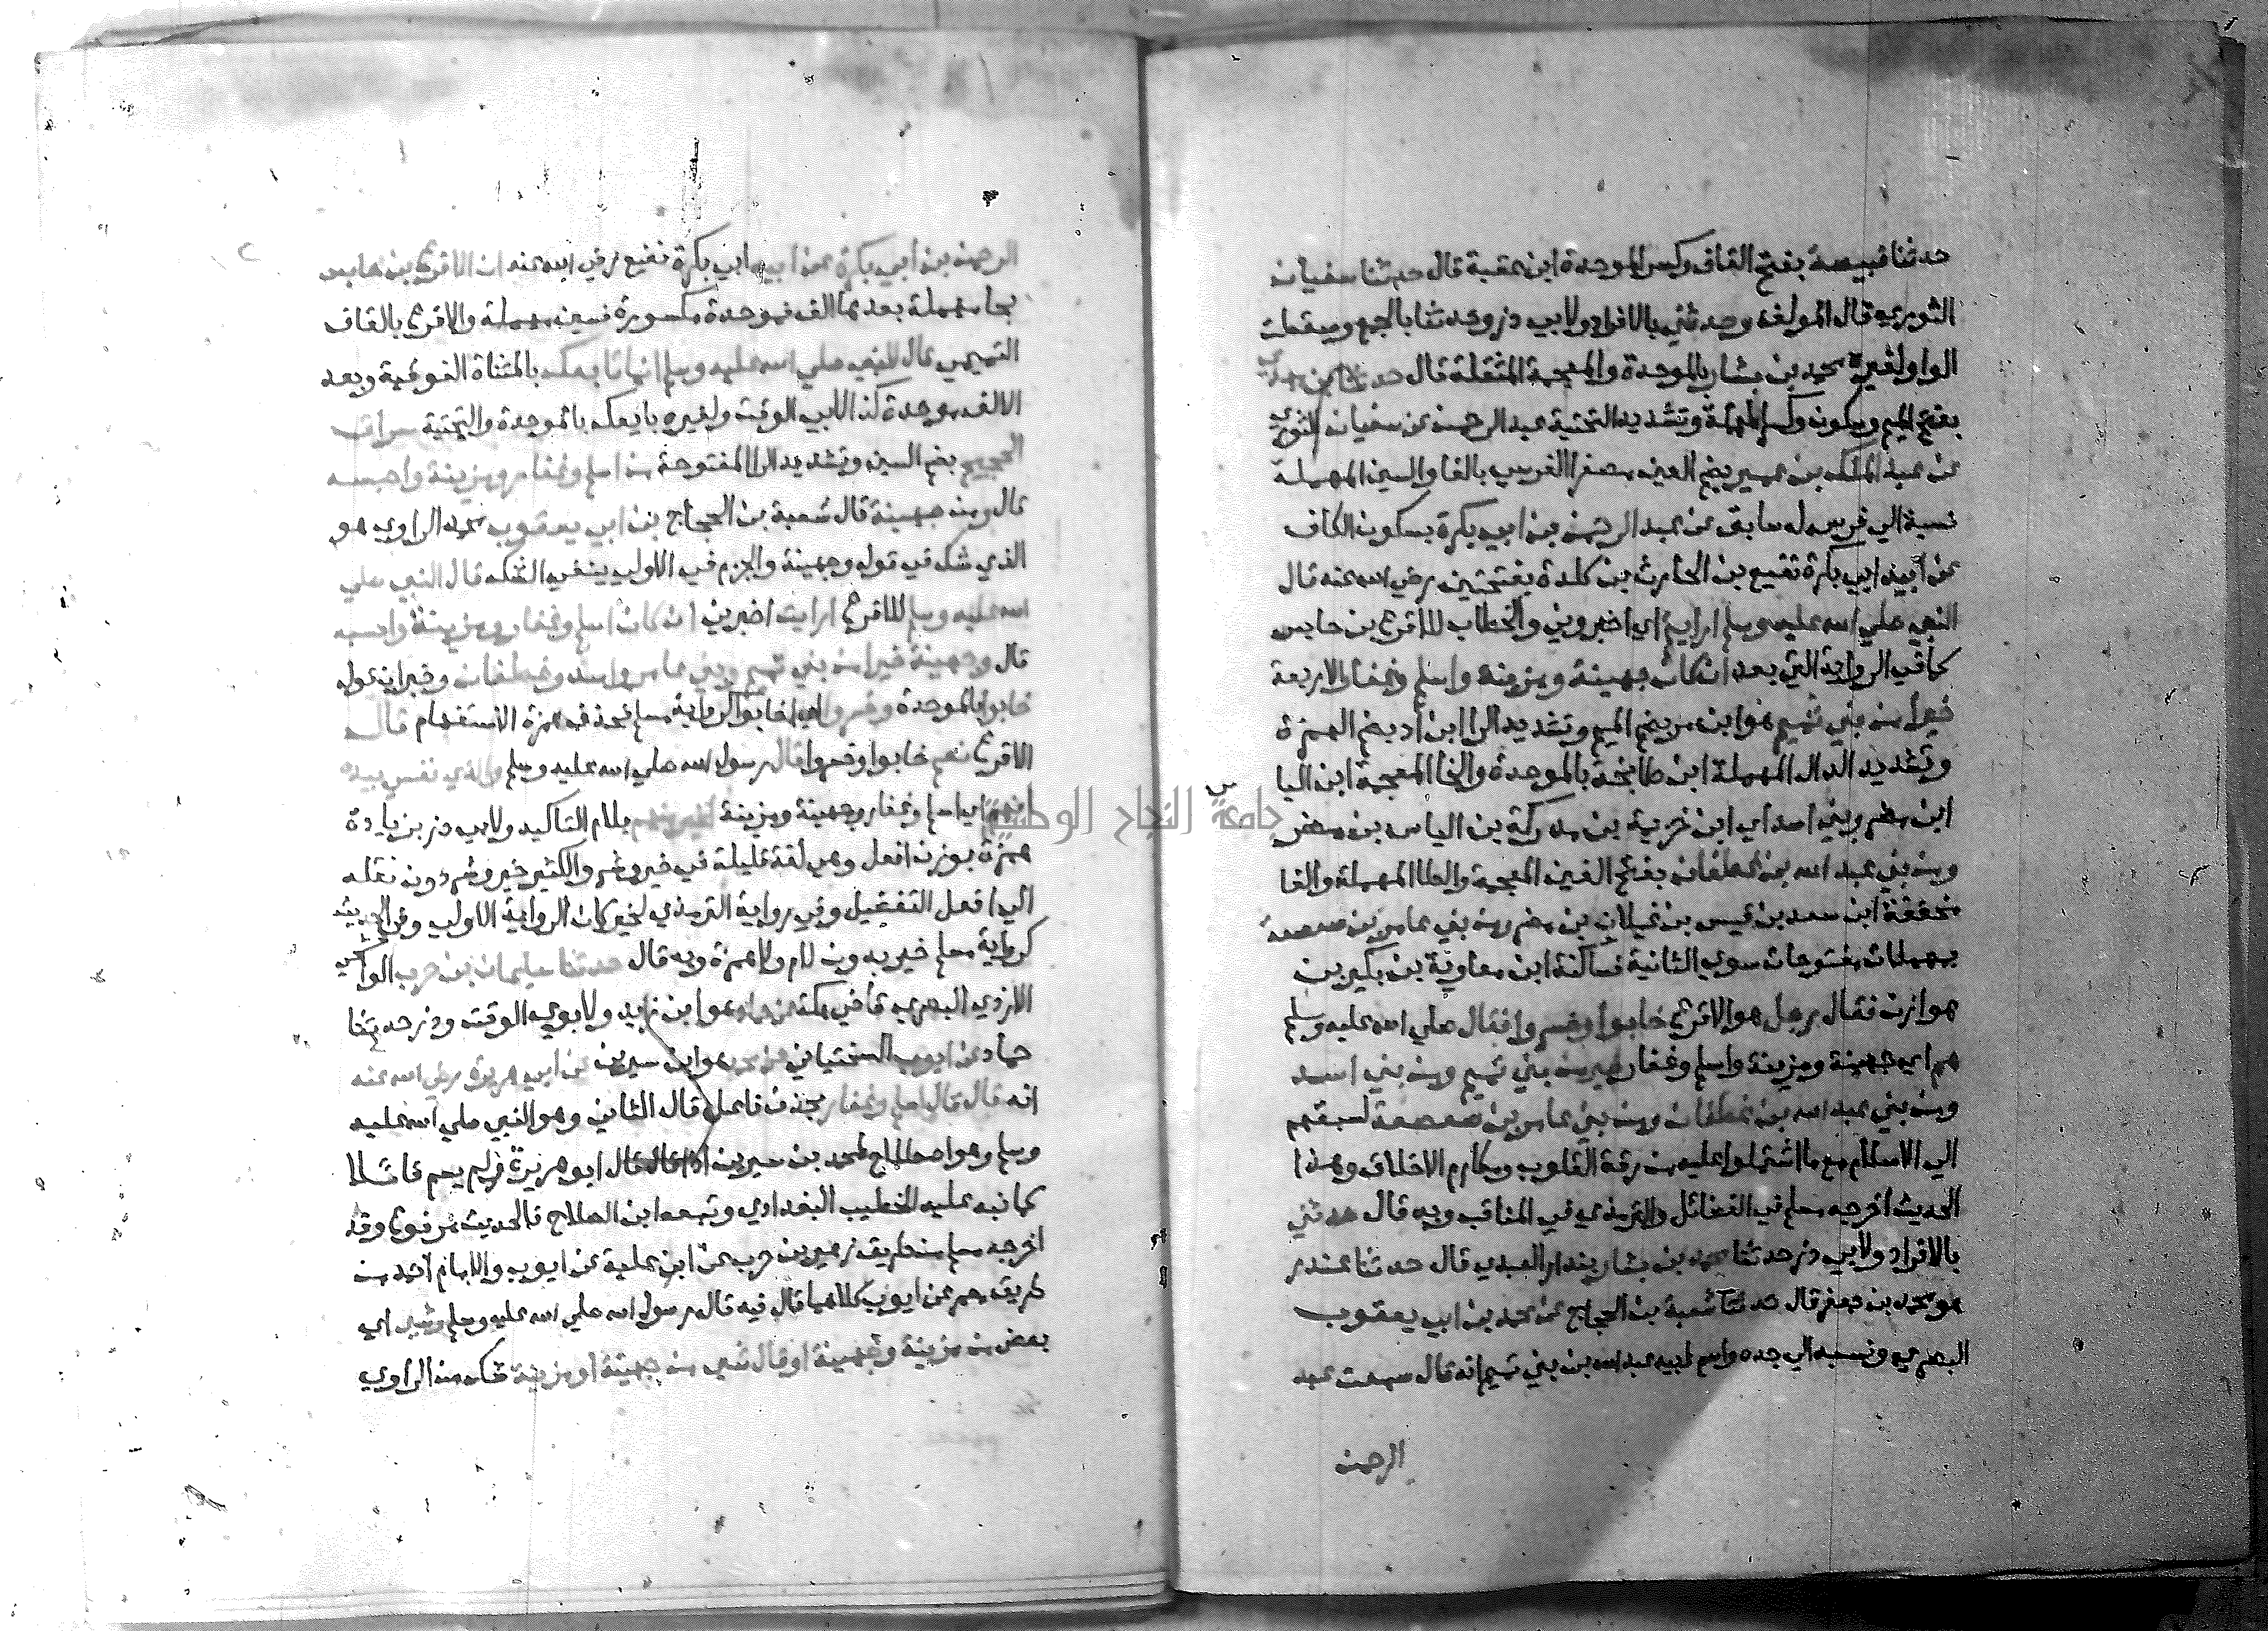 حدثنا قبيصة بفتح القاف وكسر الموحدة ابن عقبة قال حدثنا سفيان
الثوري قال المولف وحدثني بالافراد ولابي ذر وحدثنا بالجمع وسقطت
الواو لغيره محمد بن بشار بالموحدة والمعجمة المثقلة قال حدثنا ابن مهدي
بفتح الميم وسكون وكسر المهملة وتشديد التحتية عبد الرحمن عن سفيان الثوري
عن عبد الملك بن عمير بضم العين مصغرا الفرسي بالفا والسين المهملة
نسبة الي فرس له سابق عن عبد الرحمن بن ابي بكرة بسكون الكاف
عن ابيه ابي بكرة نفيع بن الحارث بن كلدة بفتحتين رضي الله عنه قال
النبي صلي الله عليه وسلم ارايتم اي اخبروني والخطاب للاقرع بن حابس
كما في الرواية التي بعد ان كان جهينة ومزينة واسلم وغفار الاربعة
خيرا من بني تميم هو ابن مر بضم الميم وتشديد الرا ابن اد بضم الهمزة
وتشديد الدال المهملة ابن طابخة بالموحدة والخا المعجمة ابن اليا س
ابن مضر وبني اسد اي ابن خزيمة بن مدركة بن الياس بن مضر
ومن بني عبد الله بن غطفان بفتح الغين المعجمة والطا المهملة والفا
مخففة ابن سعد بن قيس بن غيلان بن مضر ومن بني عامر بن صعصعة
بمهملات مفتوحات سوي الثانية فساكنة ابن معاوية بن بكير بن
هوازن فقال رجل هو الاقرع خابوا وخسروا فقال صلي الله عليه وسلم
هم اي جهينة ومزينة واسلم وغفار خير من بني تميم ومن بني اسد
ومن بني عبد الله بن غطفان ومن بني عامر بن صعصعة لسبقهم
الي الاسلام مع ما اشتملوا عليه من رقة القلوب ومكارم الاخلاق وهذا
الحديث اخرجه مسلم في الفضائل والترمذي في المناقب وبه قال حدثني
بالافراد ولابي ذر حدثنا محمد بن بشار بندار العبدي قال حدثنا غندر
هو محمد بن جعفر قال حدثنا شعبة بن الحجاج عن محمد بن ابي يعقوب
البصري ونسبه الي جده واسم ابيه عبد الله بن بني تميم انه قال سمعت عبد
الرحمن
الرحمن بن ابي بكرة عن ابيه ابي بكرة نفيع رضي الله عنه ان الاقرع بن حابس
بحا مهملة بعدها الف فموحدة مكسورة فسين مهملة والاقرع بالقاف
التميمي قال للنبي صلي الله عليه وسلم انما تابعك بالمثناة الفوقية وبعد
الالف موحدة كذا لابي الوقت ولغيره بايعك بالموحدة والتحتية سراق
الحجيج بضم السين وتشديد الرا المفتوحة من اسلم وغفار ومزينة واحسبه
قال ومن جهينة قال شعبة بن الحجاج بن ابي يعقوب محمد الراوي هو
الذي شك في قوله وجهينة والجزم في الاولي ينفي الشك قال النبي صلي
الله عليه وسلم للاقرع ارايت اخبرني ان كان اسلم وغفار ومزينة واحسبه
قال وجهينة خيرا من بني تميم وبني عامر واسد وغطفان وخبر ان قوله
خابوا بالموحدة وخسروا اي اخابوا كرواية مسلم فحذف همزة الاستفهام قال
الاقرع نعم خابوا وخسروا قال رسول الله صلي الله عليه وسلم والذي نفسي بيده
انهم اي اسلم وغفار وجهينة ومزينة لخير منهم بلام التاكيد ولابي ذر بزيادة
همزة بوزن افعل وهي لغة قليلة في خير وشر والكثير خير وشر دون نقله
الي افعل التفضيل وفي رواية الترمذي لخير كان الرواية الاولي وفي الحديث
كرواية مسلم خير بدون لام ولا همزة وبه قال حدثنا سليمان بن حرب الواشحي
الازدي البصري قاضي مكة عن حماد هو ابن زيد ولابوي الوقت وذر حدثنا
حماد عن ايوب السختياني عن محمد هو ابن سيرين عن ابي هريرة رضي الله عنه
انه قال قال اسلم وغفار بحذف فاعل قال الثاني وهو النبي صلي الله عليه
وسلم وهو اصطلاح لمحمد بن سيرين اذا قال قال ابو هريرة فلم يسم قائلا
كما نبه عليه الخطيب البغدادي وتبعه ابن الصلاح فالحديث مرفوع وقد
اخرجه مسلم من طريق زهير بن حرب عن ابن علية عن ايوب والامام احمد من
طريق معمر عن ايوب كلاهما قال فيه قال رسول الله صلي الله عليه وسلم وشي اي
بعض من مزينة وجهينة او قال شي من جهينة او مزينة شك من الراوي
جامعة النجاح الوطنية